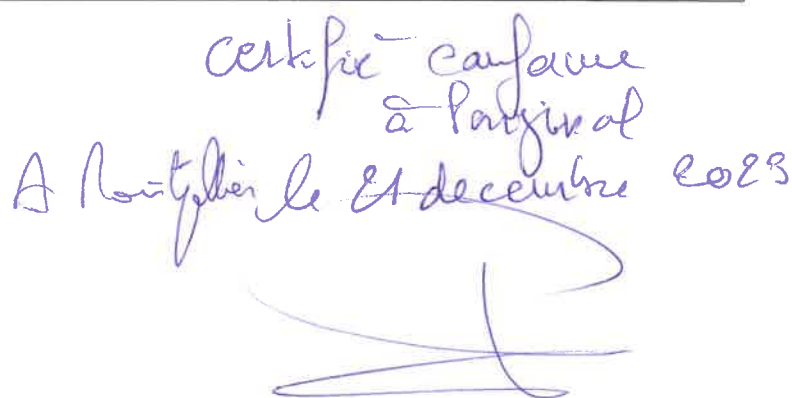 Certifié conforme
à l'original
A Montpellier le 21 decembre 2023